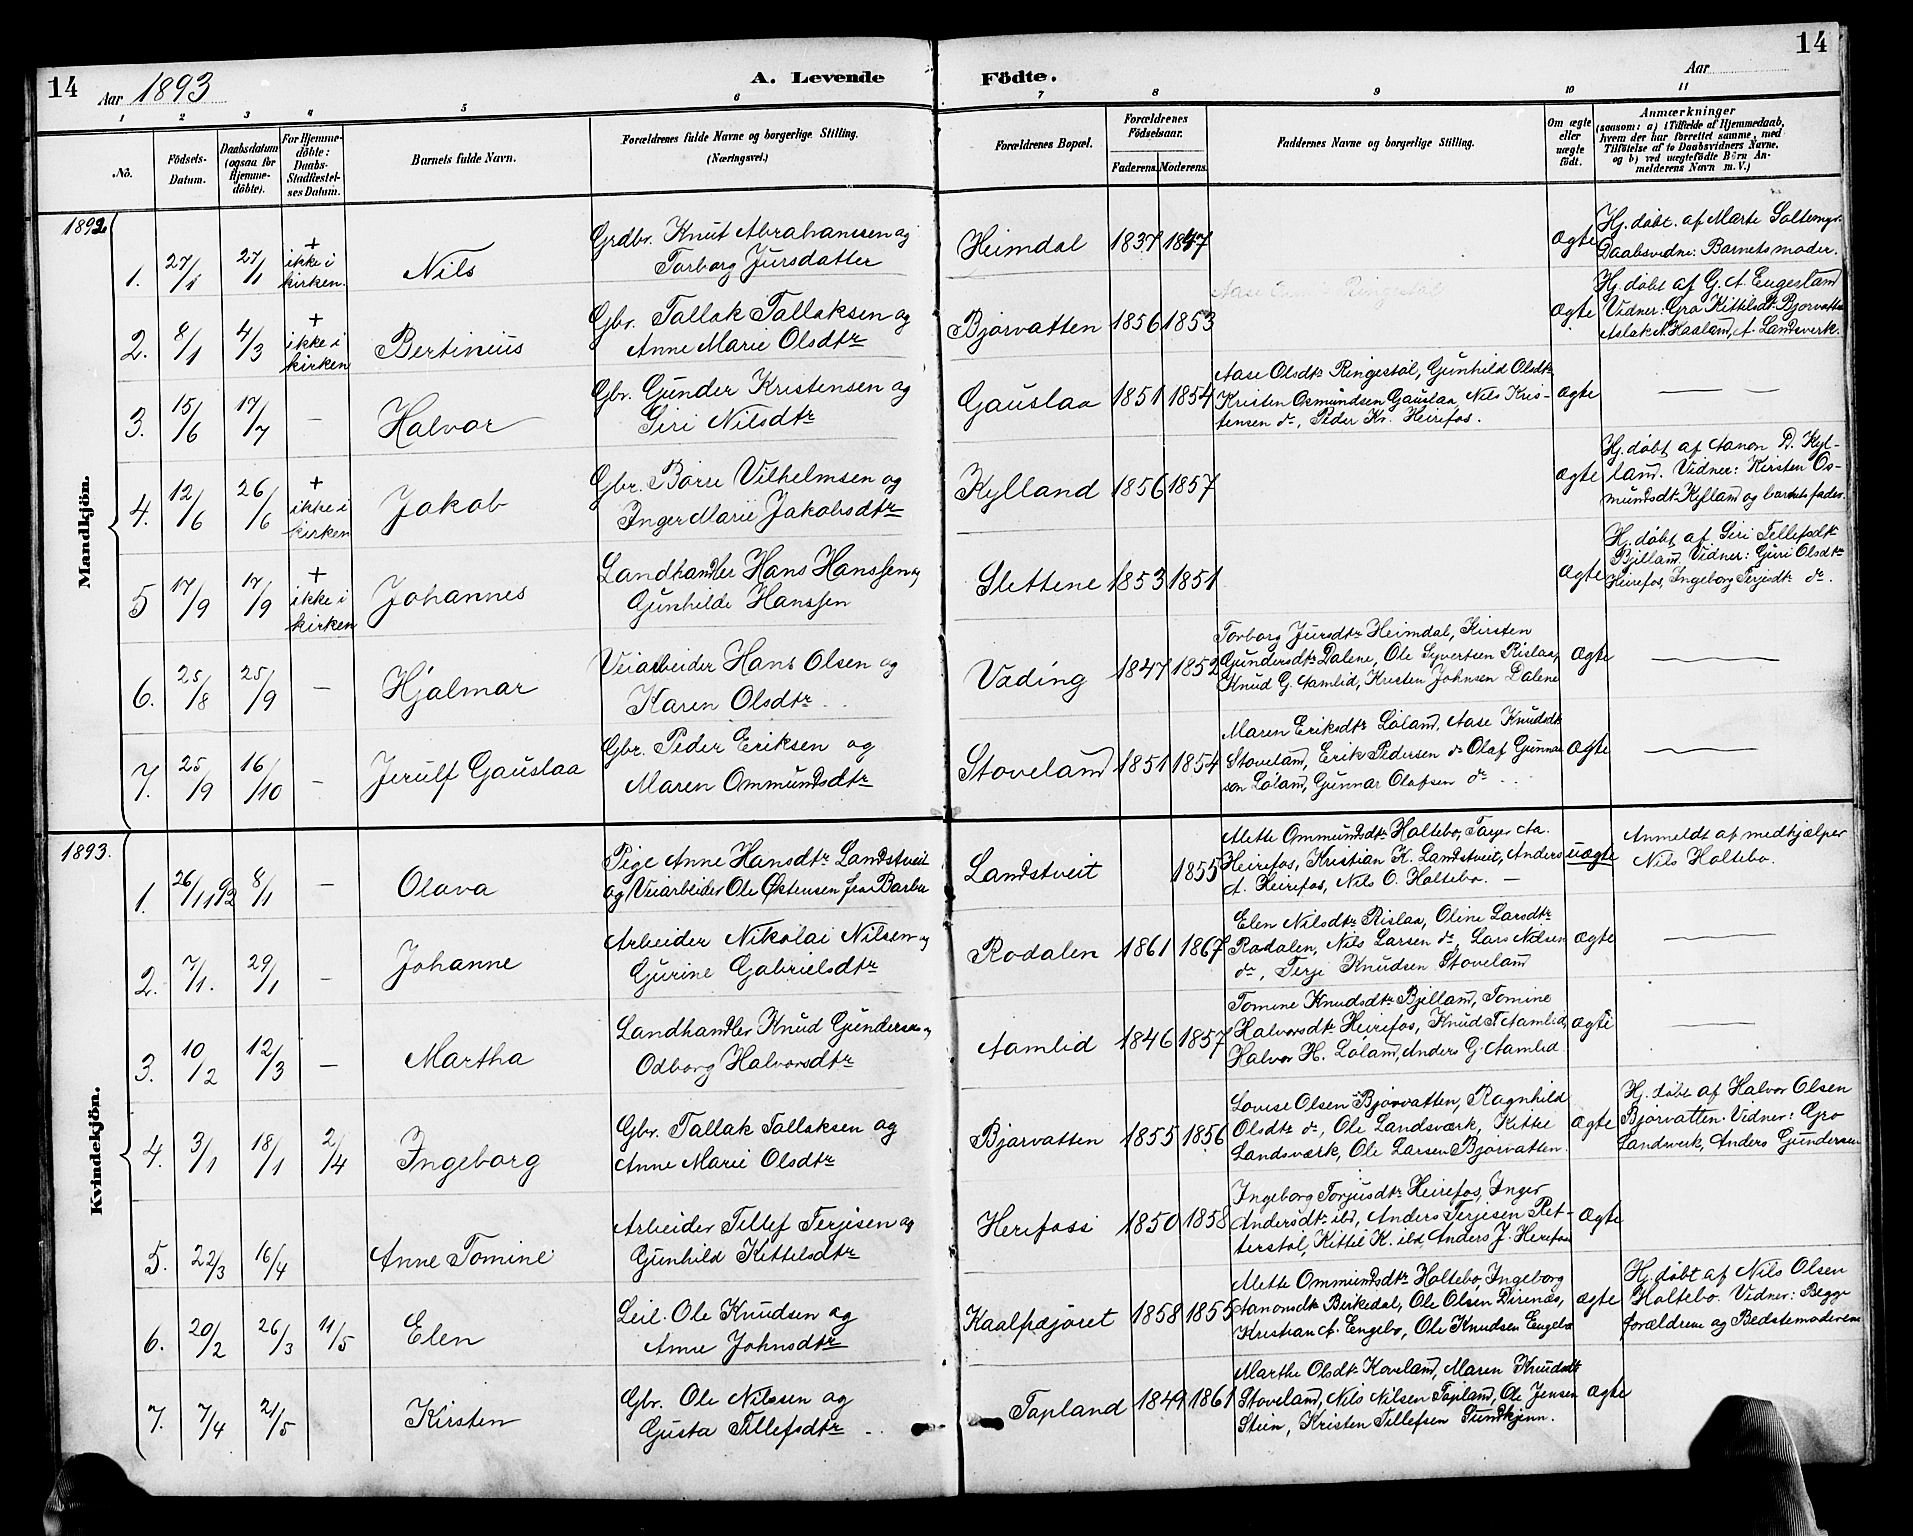 14
Aar 1893
A. Levende
Födte.
Aar
14
1 2 3 4 5 6 7 8 9 10 11
No.
Födsels-
Datum.
Daabsdatum
(ogsaa for
Hjemme-
döbte).
For Hjemme-
döbte:
Daabs-
Stadfæstel-
ses Datum.
Barnets fulde Navn.
Forældrenes fulde Navne og borgerlige Stilling.
(Næringsvei.)
Forældrenes Bopæl.
Forældrenes
Födselsaar.
Faderens. Moderens.
Faddernes Navne og borgerlige Stilling.
Om ægte
eller
uægte
födt.
Anmærkninger
(saasom: a) i Tilfælde af Hjemmedaab,
hvem der har forrettet samme, med
Tilföielse af to Daabsvidners Navne.
og b) ved uægtefödte Börn An-
melderens Navn m. V.)
Mandkjön.
1892
1. 27/1 27/1 + ikke i kirken. Nils
Grdbr. Knut Abrahamsen og
Torborg Jursdatter
Heimdal 1837 1847 ægte
Hj. døbt. af Marte Saltemyr.
Daabsvidne: Barnets moder.
2. 8/1 4/3 + ikke i kirken Bertinius
Gbr. Tallak Tallaksen og
Anne Marie Olsdtr
Bjorvatten 1856 1853 ægte
Hj. døbt af G. A. Eugestad
Vidner: Gro Kittilsdt. Bjorvatten
Aslak N. Haaland, A. Landsverk.
3. 15/6 17/7 – Halvor
Gbr. Gunder Kristensen og
Siri Nilsdtr
Gauslaa 1851 1854
Aase Olsdtr Ringestøl, Gunhild Olsdtr
Kristen Osmundsen Gauslaa, Nils Kris-
tensen do, Peder Kr. Heirefos.
ægte —
4. 12/6 26/6 + ikke i kirken Jakob
Gbr. Børe Vilhelmsen og
Inger Marie Jakobsdtr
Kylland 1856 1857 ægte
Hj. døbt af Aanon D. Kyl-
land. Vidner: Kirsten Os-
mundsdtr Kylland og barnets fader.
5 17/9 17/9 + ikke i kirken Johannes
Landhandler Hans Hanssen og
Gunhilde Hanssen
Slettene 1853 1851 ægte
Hj. døbt af Siri Tellefsdtr
Bjelland. Vidner: Guri Olsdtr
Heirefos, Ingeborg Terjesdtr do.
6. 25/8 25/9 – Hjalmar
Veiarbeider Hans Olsen og
Karen Olsdtr
Vading 1847 1852
Torborg Jursdtr Heimdal, Kirsten
Gundersdtr Dalene, Ole Syvertsen Rislaa,
Knud G. Aamlid, Kristen Johnsen Dalene
ægte —
7. 25/9 16/10 – Jerulf Gauslaa
Gbr. Peder Eriksen og
Maren Ommundsdtr
Stoveland 1851 1854
Maren Eriksdtr Løland, Aase Knudsdtr
Stoveland, Erik Pedersen do Olaf Gunnar
søn Løland, Gunnar Olafsen do
ægte —
Kvindekjön.
1893.
1. 26/11 92 8/1 – Olava
Pige Anne Hansdtr Landstveit
og Veiarbeider Ole Østensen fra Barbu
Landstveit 1855
Mette Ommundsdtr Holtebo, Tarjer Aa.
Heirefos, Kristian K. Landstveit, Anders
A. Heirefos, Nils O. Holtebo. –
uægte
Anmeldt af medhjælper
Nils Holtebo.
2. 7/1. 29/1 – Johanne
Arbeider Nikolai Nilsen og
Gurine Gabrielsdtr
Rodalen 1861 1867
Elen Nilsdtr Rislaa, Oline Larsdtr
Rødalen, Nils Larsen do, Lars Nilsen
do, Terje Knudsen Stoveland
ægte —
3. 10/2 12/3 – Martha
Landhandler Knud Gundersen og
Odborg Halvorsdtr
Aamlid 1846 1857
Tomine Knudsdtr Bjelland, Tomine
Halvorsdtr Heirefos, Knud T. Aamlid,
Halvor H. Løland, Anders G. Aamlid
ægte —
4. 3/1 18/1 2/4 Ingeborg
Gbr. Tallak Tallaksen og
Anne Marie Olsdtr
Bjorvatten 1855 1856
Lovise Olsen Bjorvatten, Ragnhild
Olsdtr do, Ole Landsværk, Kittil
Landsværk, Ole Larsen Bjorvatten.
ægte
Hj. døbt af Halvor Olsen
Bjorvatten. Vidner: Gro
Landsverk, Anders Gundersen
5. 22/3 16/4 Anne Tomine
Arbeider Tellef Terjesen og
Gunhild Kittelsdtr
Herefoss 1850 1858
Ingeborg Torjusdtr Heirefos, Inger
Andersdtr ibd, Anders Terjesen Ret-
terstøl, Kittil K. ibd, Anders J. Herefos
ægte
6. 20/2 26/3 11/5 Elen
Leil. Ole Knudsen og
Anne Johnsdtr
Kaalhæjoret 1858 1855
Mette Ommundsdtr Holtebo, Ingeborg
Aanonsdtr Birkedal, Ole Olsen Direnæs,
Kristian A. Engebo, Ole Knudsen Engebo
ægte
Hj. døbt af Nils Olsen
Holtebo. Vidner: Begge
forældrene og Bedstemoderen
7. 7/4 21/5 Kirsten
Gbr. Ole Nilssen og
Gusta Tellefsdtr
Tapland 1849 1861
Marthe Olsdtr Koveland, Maren Knudsdtr
Stoveland, Nils Nilsen Tapland, Ole Jensen
Stein, Kristen Tellefsen Tundkjenn.
ægte